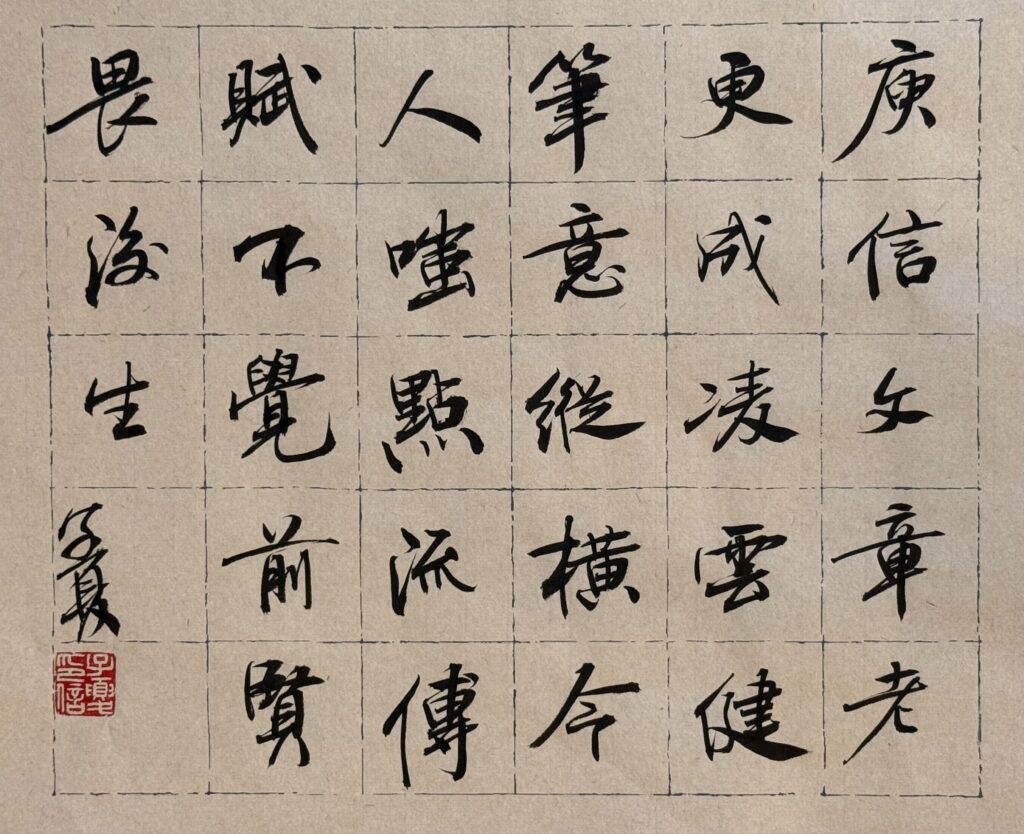 庾信文章老
更成凌雲健
筆意縱橫今
人嗤點流傳
賦不覺前賢
畏後生
子夏
子夏印信